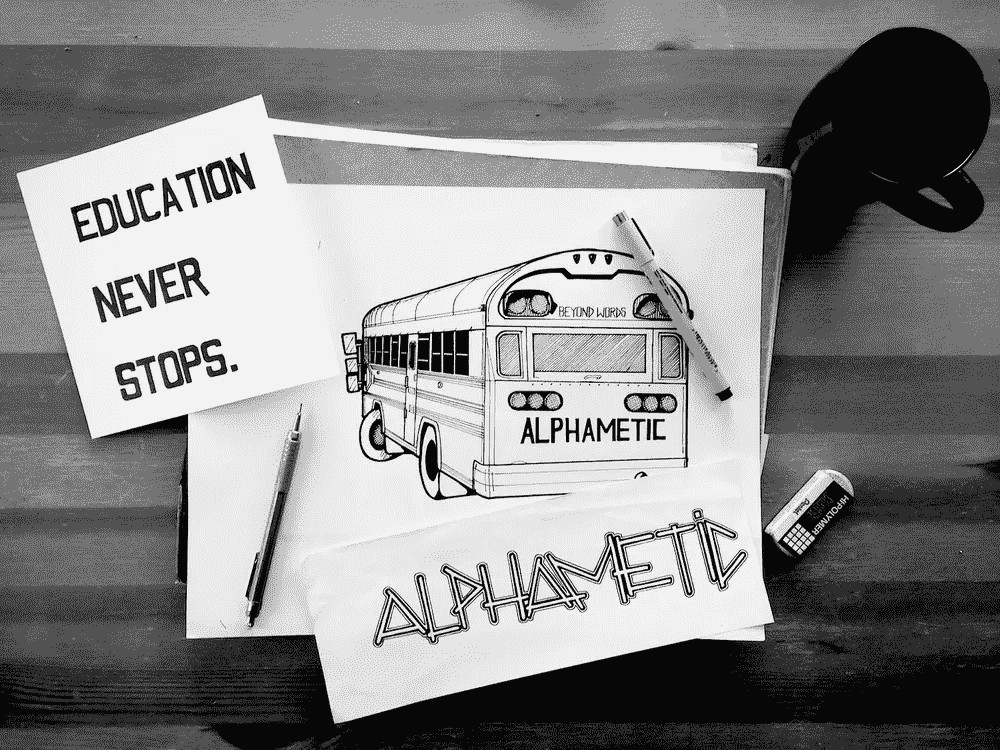 EDUCATION
NEVER
STOPS.
BEYOND WORDS
ALPHAMETIC
ALPHAMETIC
Pentel
HI-POLYMER